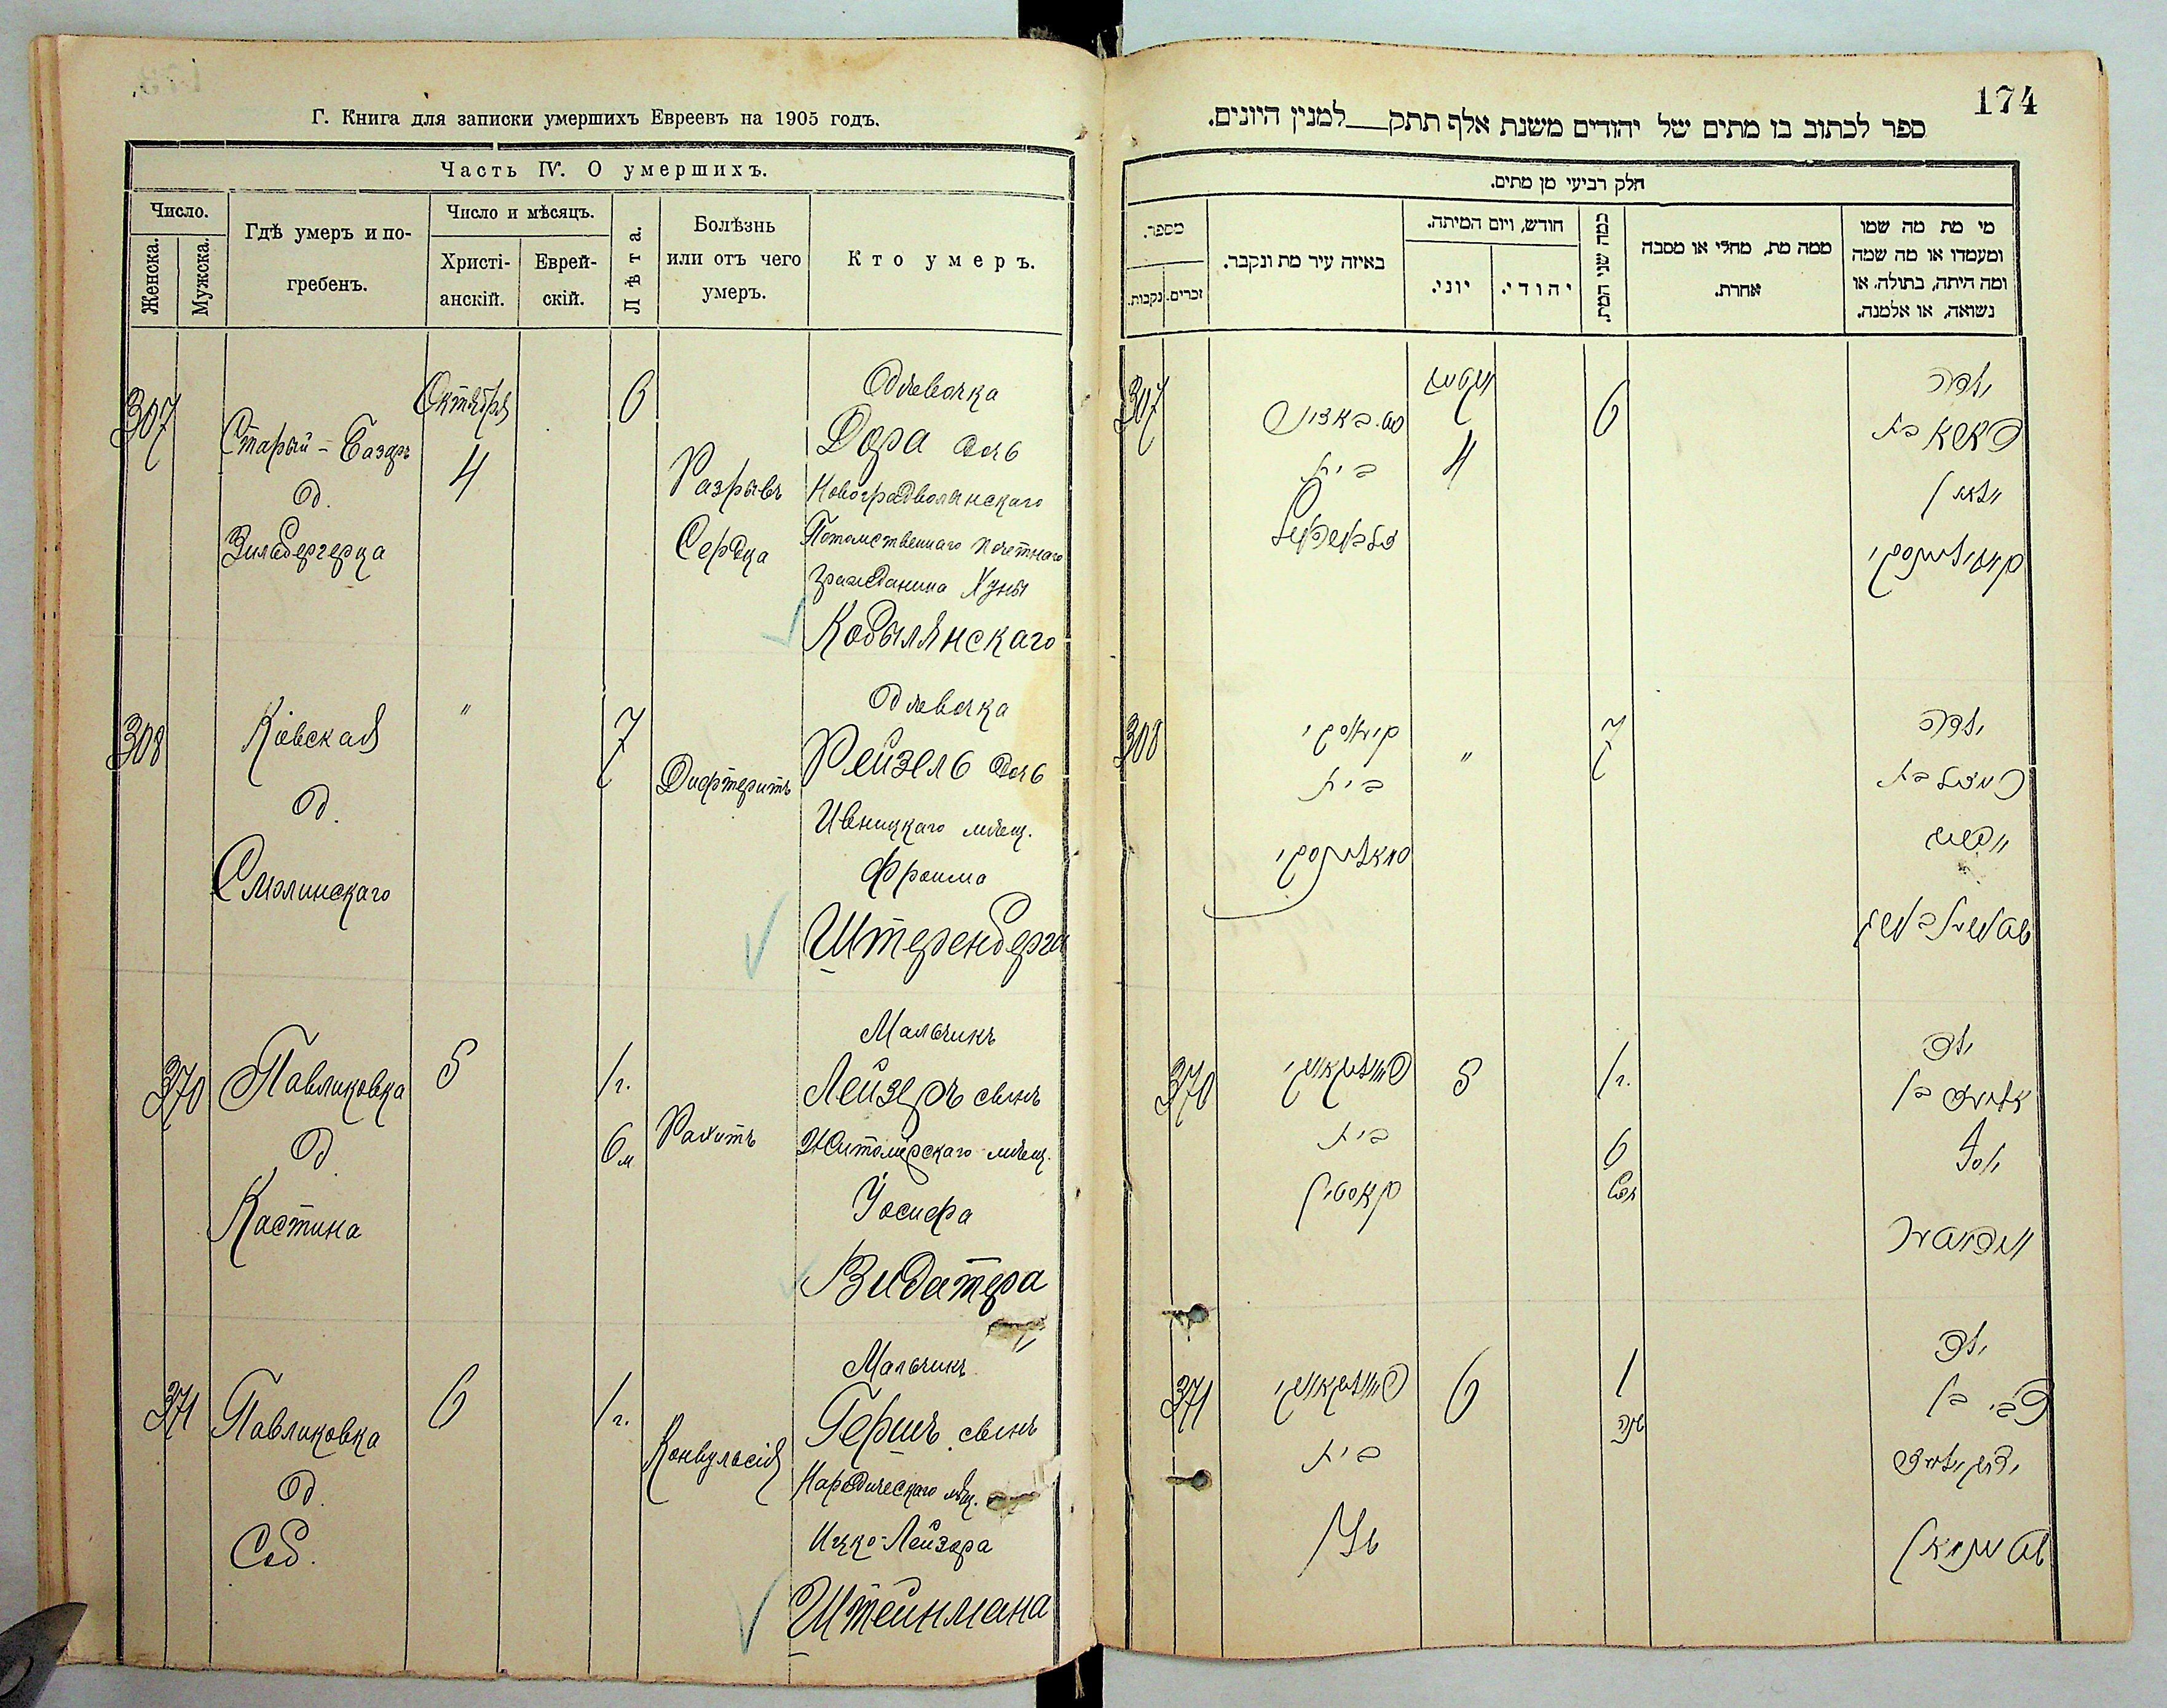 Г. Книга для записки умершихъ Евреевъ на 1905 годъ.
Часть IV. О умершихъ.
Число.
Женска.
Мужска.
Гдѣ умеръ и по-
гребенъ.
Число и мѣсяцъ.
Христі-
анскій.
Еврей-
скій.
Лѣта.
Болѣзнь
или отъ чего
умеръ.
Кто умеръ.
307
Старый-Базаръ
д.
Зильбергерца
Октября
4
6
Разрывъ
Сердца
Дѣвочка
Дора дочь
Новоградволынскаго
Потомственнаго почетнаго
гражданина Хуны
Кобылянскаго
308
Кіевская
д.
Смолинскаго
"
7
Дифтеритъ
Дѣвочка
Рейзель дочь
Ивницкаго мѣщ.
Фроима
Штеренберга
370
Павликовка
д.
Кастина
5
1 г.
6 м
Рахитъ
Мальчикъ
Лейзеръ сынъ
Житомірскаго мѣщ.
Іосифа
Видатера
371
Павликовка
д.
Соб.
6
1 г.
Конвульсія
Мальчикъ
Гершъ сынъ
Народическаго мѣщ.
Ицко-Лейзора
Штейнмана
174
ספר לכתוב בו מתים של יהודים משנת אלף תתק למנין היונים.
חלק רביעי מן מתים.
מספר.
נקבות.
זכרים.
באיזה עיר מת ונקבר.
חודש, ויום המיתה.
יוני.
יהודי.
כמה שני המת.
ממה מת, מחלי או מסבה
אחרת.
מי מת מה שמו
ומעמדו או מה שמה
ומה היתה, בתולה, או
נשואה, או אלמנה.
307
בית
4
6
ילדה
308
בית
"
7
ילדה
בת
370
בית
קאסטין
5
1 г.
6
ילד
בן
יוסף
371
בית
6
1
שנה
ילד
צבי בן
שטיינמאן